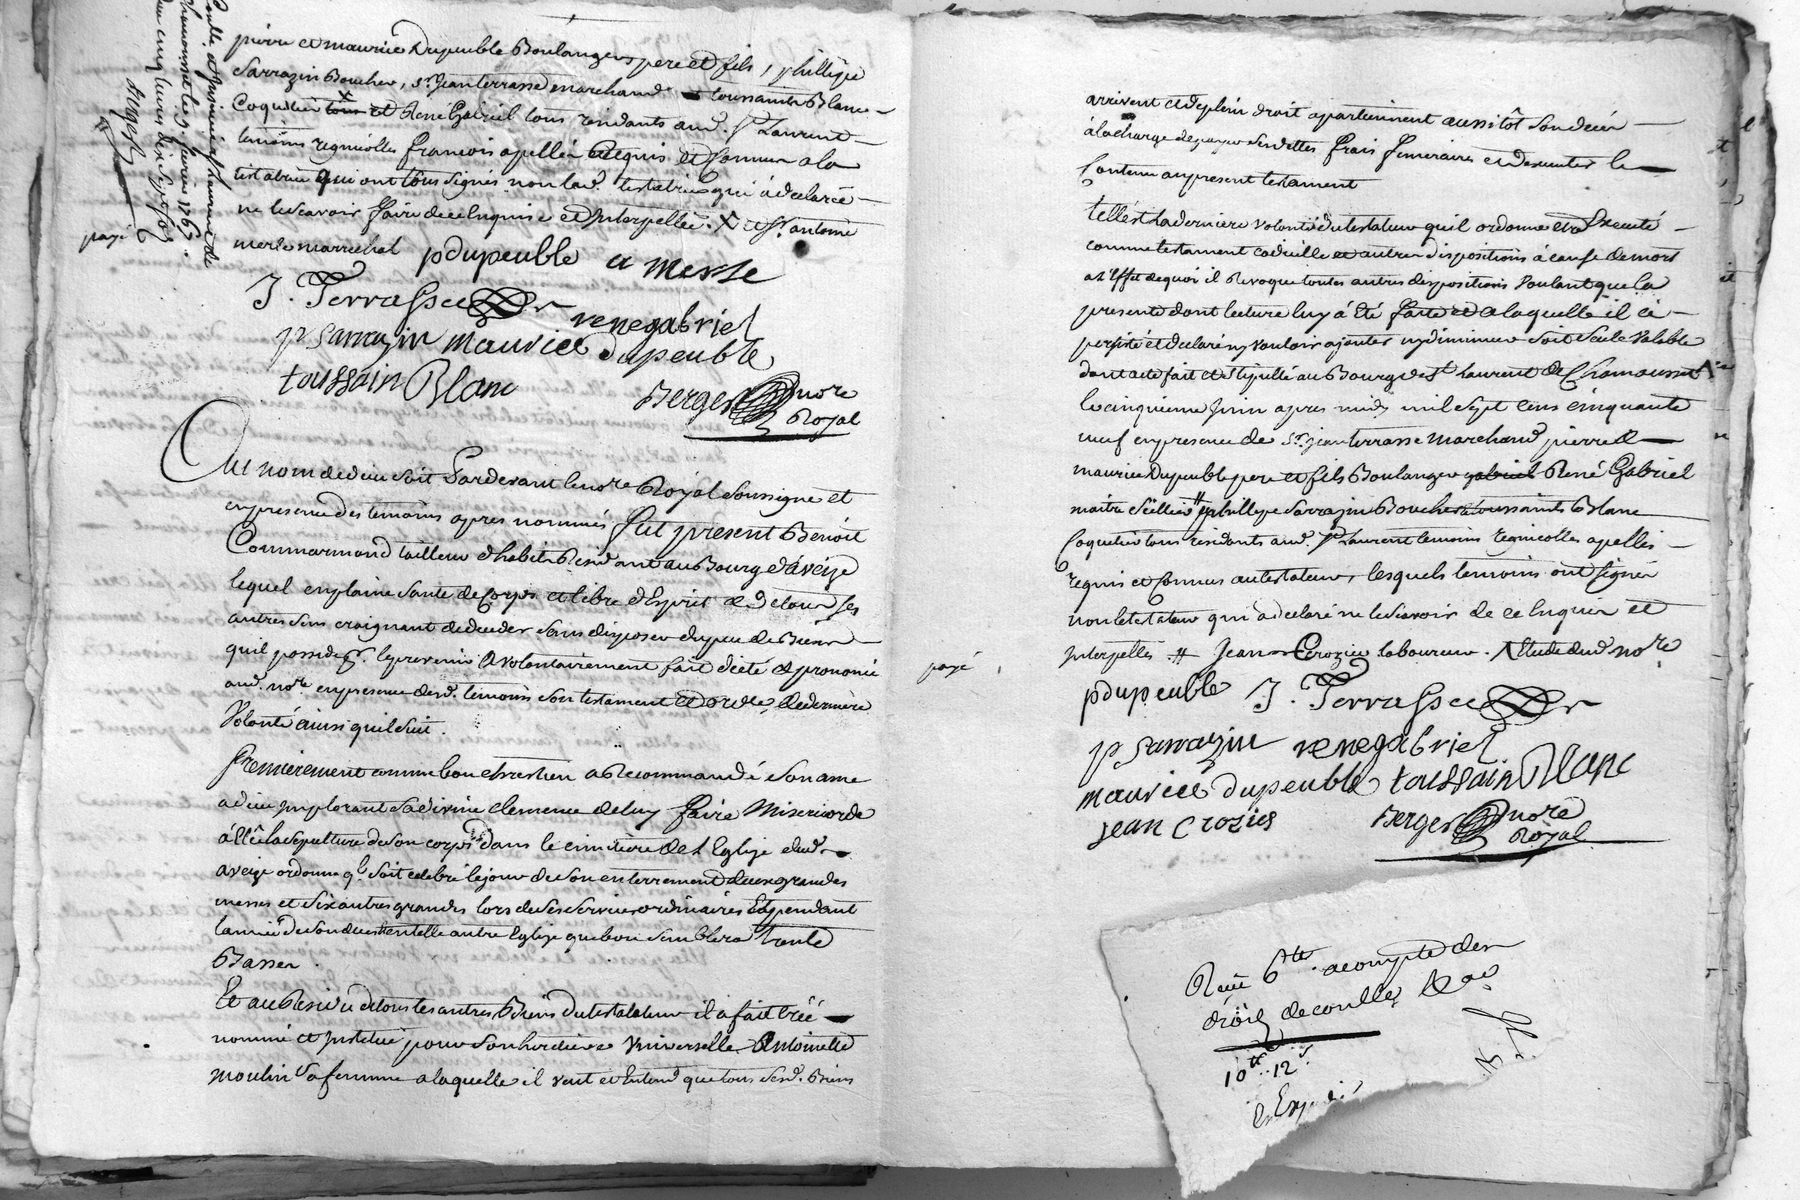 pierre et maurice Dupeuble Boulangers pere et fils, phillipe
Sarrazin Boucher, Sr. Jean terrasse marchand toussaints Blanc
Coquetier tous et René Gabriel tous residants aud. St Laurent
temoins regnicolles francois apellés Requis et Connus a la
testatrice qui ont tous signés non lad. testatrice qui à declaré
ne le scavoir faire de ce Enquise et Interpellée. X et St. antoine
merle marrechal pdupeuble a merle
J. Terrasse renegabriel
p Sarrazin maurice dupeuble
toussain Blanc
Berger nore
Royal
payé
Au nom de dieu soit Pardevant le nore Royal Soussigné et
en presence des temoins apres nommés fut present Benoit
Commarmond tailleur d'habits Residant au Bourg d'aveize
lequel en plaine Santé de Corps et libre d'Esprit et de tous ses
autres sens craignant de deceder sans disposer du peu de Biens
quil possede pr. le prevenir a volontairement fait dicté et prononcé
aud. nore en presence desd. temoins son testament et ordre de derniere
Volonté ainsi quil suit.
Premierement comme bon chretien a Recommandé Son ame
a dieu Implorant sa divine clemence de luy faire Misericorde
à Elû la sepulture de son corps dans le cimetiere de l'Eglise dud.
aveize ordonne ql. soit celebré le jour de son enterrement deux grandes
messes et six autres grandes lors de ses services ordinaires Et pendant
l'année de son deces en telle autre Eglise que bon semblera trente
Basses.
Et au Residu de tous les autres Biens du testatateur il a fait Créé
nommé et Institué pour son heritiere Universelle Antoinette
moulin sa femme a laquelle il veut et Entend que tous sesd. Biens
payé
arrivent et de plein droit apartiennent aussitôt son deces
à la charge de payer ses dettes frais funeraires et d'executer le
Contenu au present testament
telle est la derniere volonté du testateur quil ordonne etre Executé
comme testament codicille et autres dispositions à cause de mort
a l'Effet de quoi il Revoque toutes autres dispositions Voulant que la
presente dont lecture luy à été faite et a laquelle il à
persisté et declaré ny vouloir ajouter ny diminuer soit seule valable
dont acte fait et stipullé au Bourg de St Laurent de Chamousset
le cinquieme Juin apres midy mil sept cens cinquante
neuf en presence de Sr. Jean terrasse marchand pierre et
maurice Dupeuble pere et fils Boulangers gabriel René Gabriel
maitre Sellier # phillipe Sarrazin Boucher toussaints Blanc
Coquetier tous residants aud. St Laurent temoins regnicolles apellés
requis et Connus au testateur, lesquels temoins ont signés
non le testateur qui a declaré ne le savoir de ce Enquis et
Interpellés # Jean Crozier laboureur. A l'Etude dud nore
pdupeuble J. Terrasse
p Sarrazin renegabriel
maurice dupeuble toussain Blanc
jean crozier Berger nore
Royal
Recu 6tt acompte des
droit de conlle
10tt.. 12s